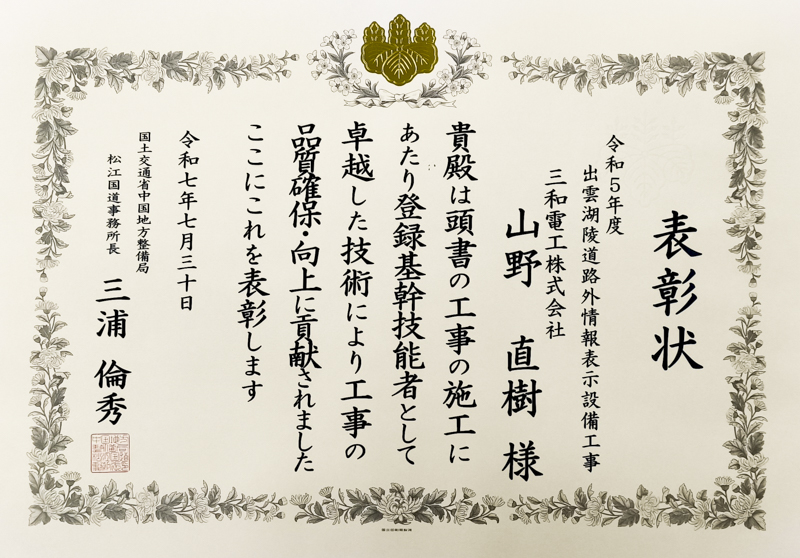 表彰状
令和5年度
出雲湖陵道路外情報表示設備工事
三和電工株式会社
山野 直樹 様
貴殿は頭書の工事の施工に
あたり登録基幹技能者として
卓越した技術により工事の
品質確保・向上に貢献されました
ここにこれを表彰します
令和七年七月三十日
国土交通省中国地方整備局
松江国道事務所長
三浦 倫秀